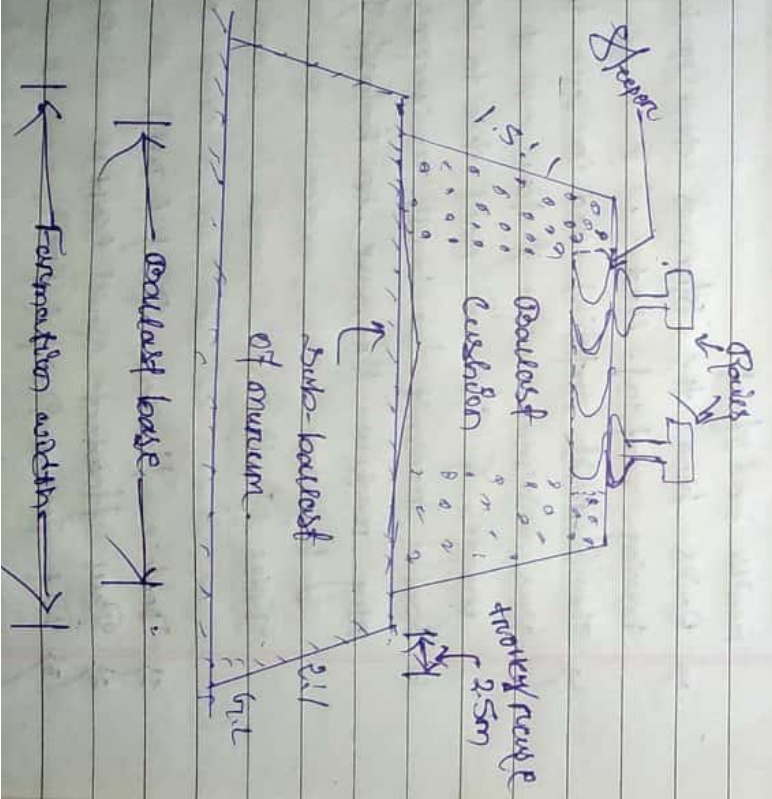 Rails
Sleeper
1.5:1
Ballast
Cushion
trolley/refuse
2.5m
Sub-ballast
of murum
2:1
G.L
Ballast base
Formation width